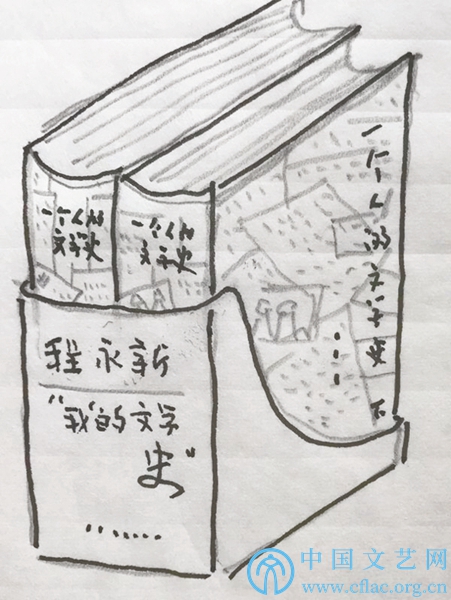 一个人的
文学史
一个人的
文学史
一个人的文学史
下
程永新
"我的文学
史"
.......
中国文艺网
www.cflac.org.cn